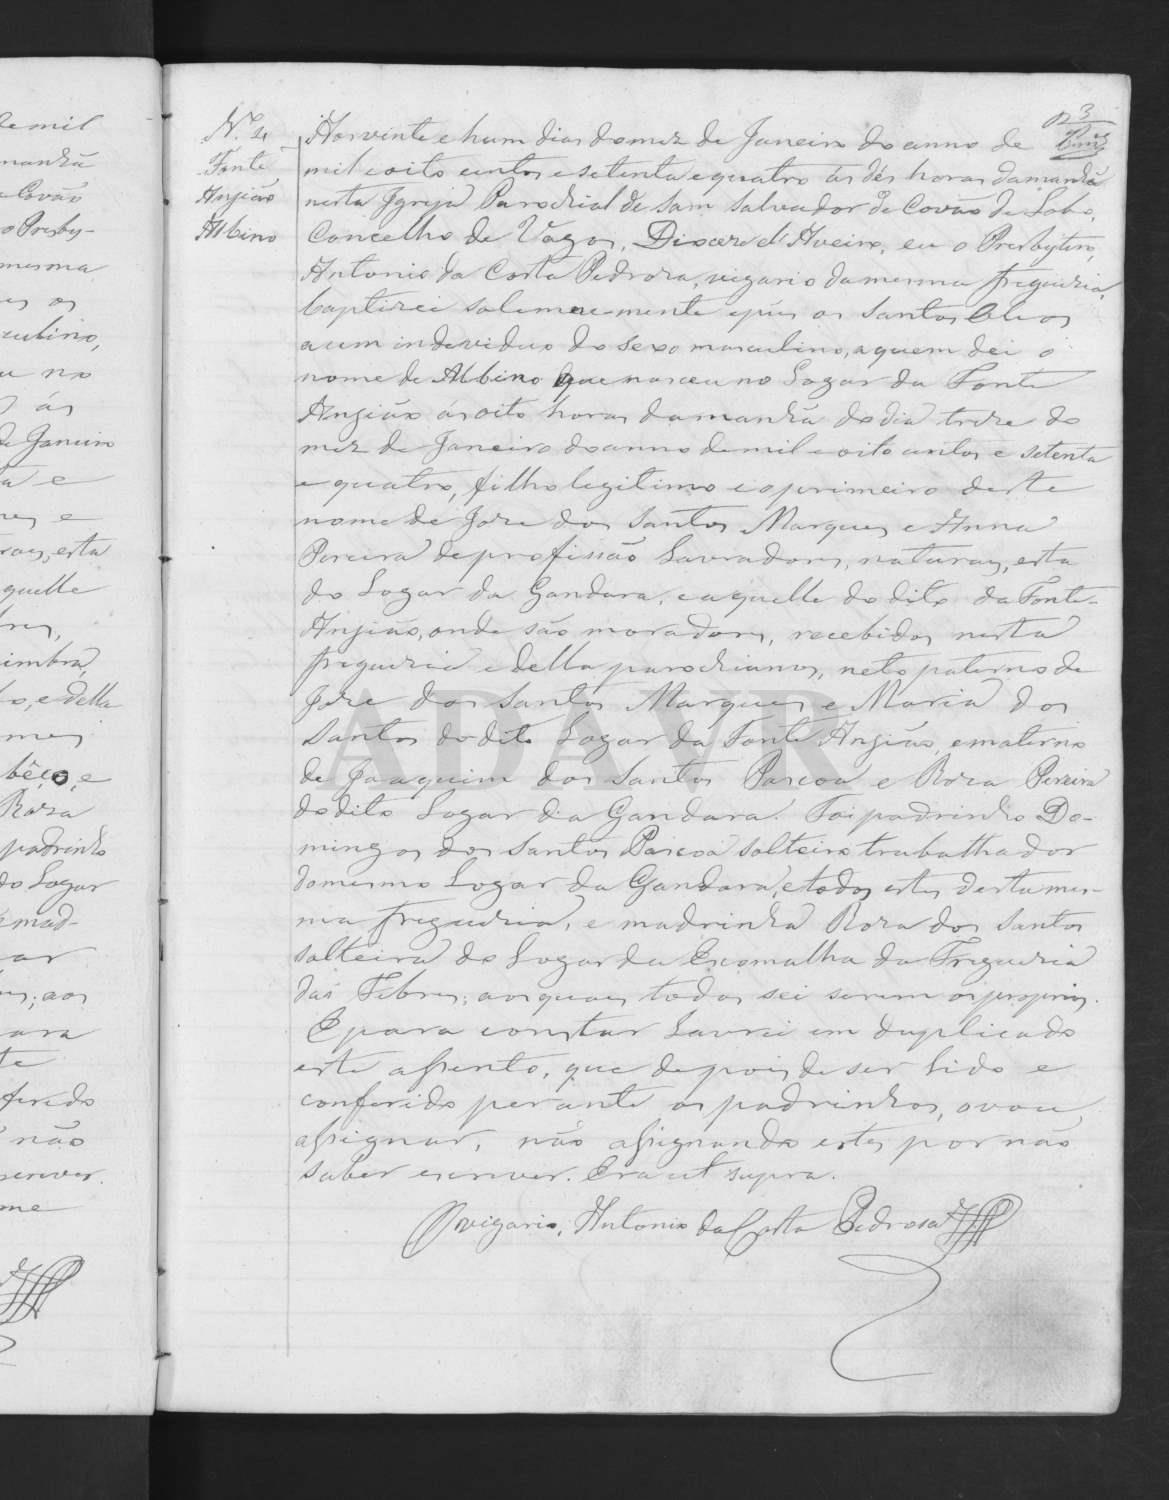 3
N.º 4
Fonte
Angião
Albino
Aos vinte e hum dias do mez de Janeiro do anno de
mil e oito centos e setenta e quatro ás dés horas da manhã
nesta Igreja Parochial de Sam Salvador de Covão de Lobo,
Concelho de Vagos, Diocese d'Aveiro, eu o Presbytero,
Antonio da Costa Pedrosa, vigario da mesma freguezia,
baptizei solemnemente e pús os Santos Oleos
a um individuo do sexo masculino, a quem dei o
nome de Albino que nasceu no Logar da Fonte
Angião ás oito horas da manhã do dia treze do
mez de Janeiro do anno de mil e oito centos e setenta
e quatro, filho legitimo e o primeiro deste
nome de Joze dos Santos Marques e Anna
Pereira de profissão Lavradores, naturaes, esta
do Logar da Gandara, e aquelle do dito da Fonte-
Angião, onde são moradores, recebidos nesta
freguezia e della parochianos, neto paterno de
Joze dos Santos Marques e Maria dos
Santos do dito Logar da Fonte Angião, e materno
de Joaquim dos Santos Pascoa e Roza Pereira
do dito Logar da Gandara. Foi padrinho Do-
mingos dos Santos Pascoa solteiro trabalhador
do mesmo Logar da Gandara, e todos estes desta mes-
ma freguezia, e madrinha Roza dos Santos
solteira do Logar da Escomalha da Freguezia
das Febres; aos quaes todos sei serem os proprios.
E para constar Lavrei em duplicado
este assento, que depois de ser lido e
conferido perante os padrinhos, o vou
assignar, não assignando estes por não
saber escrever. Era ut supra.
O vigario, Antonio da Costa Pedrosa
ADAVR